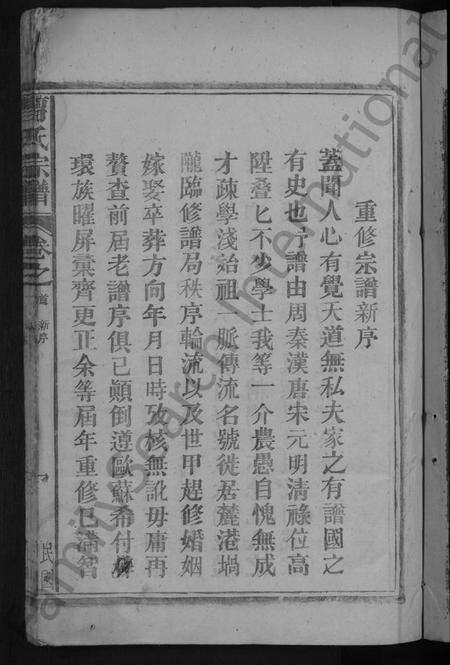 重修宗譜新序
蓋聞人心有覺天道無私夫家之有譜國之
有史也予譜由周秦漢唐宋元明清祿位高
陞叠匕不少學士我等一介農愚自愧無成
才疎學淺始祖一脈傳流名號徙居麓港堝
隴臨修譜局秩序輪流以及世甲趕修婚姻
嫁娶卒葬方向年月日時攷核無訛毋庸再
贅查前屆老譜序俱己顛倒遵歐蘇希付
環族曜屏彙齊更正余等屆年重修已滿
氏宗譜
卷之
首
新序
familysearch International